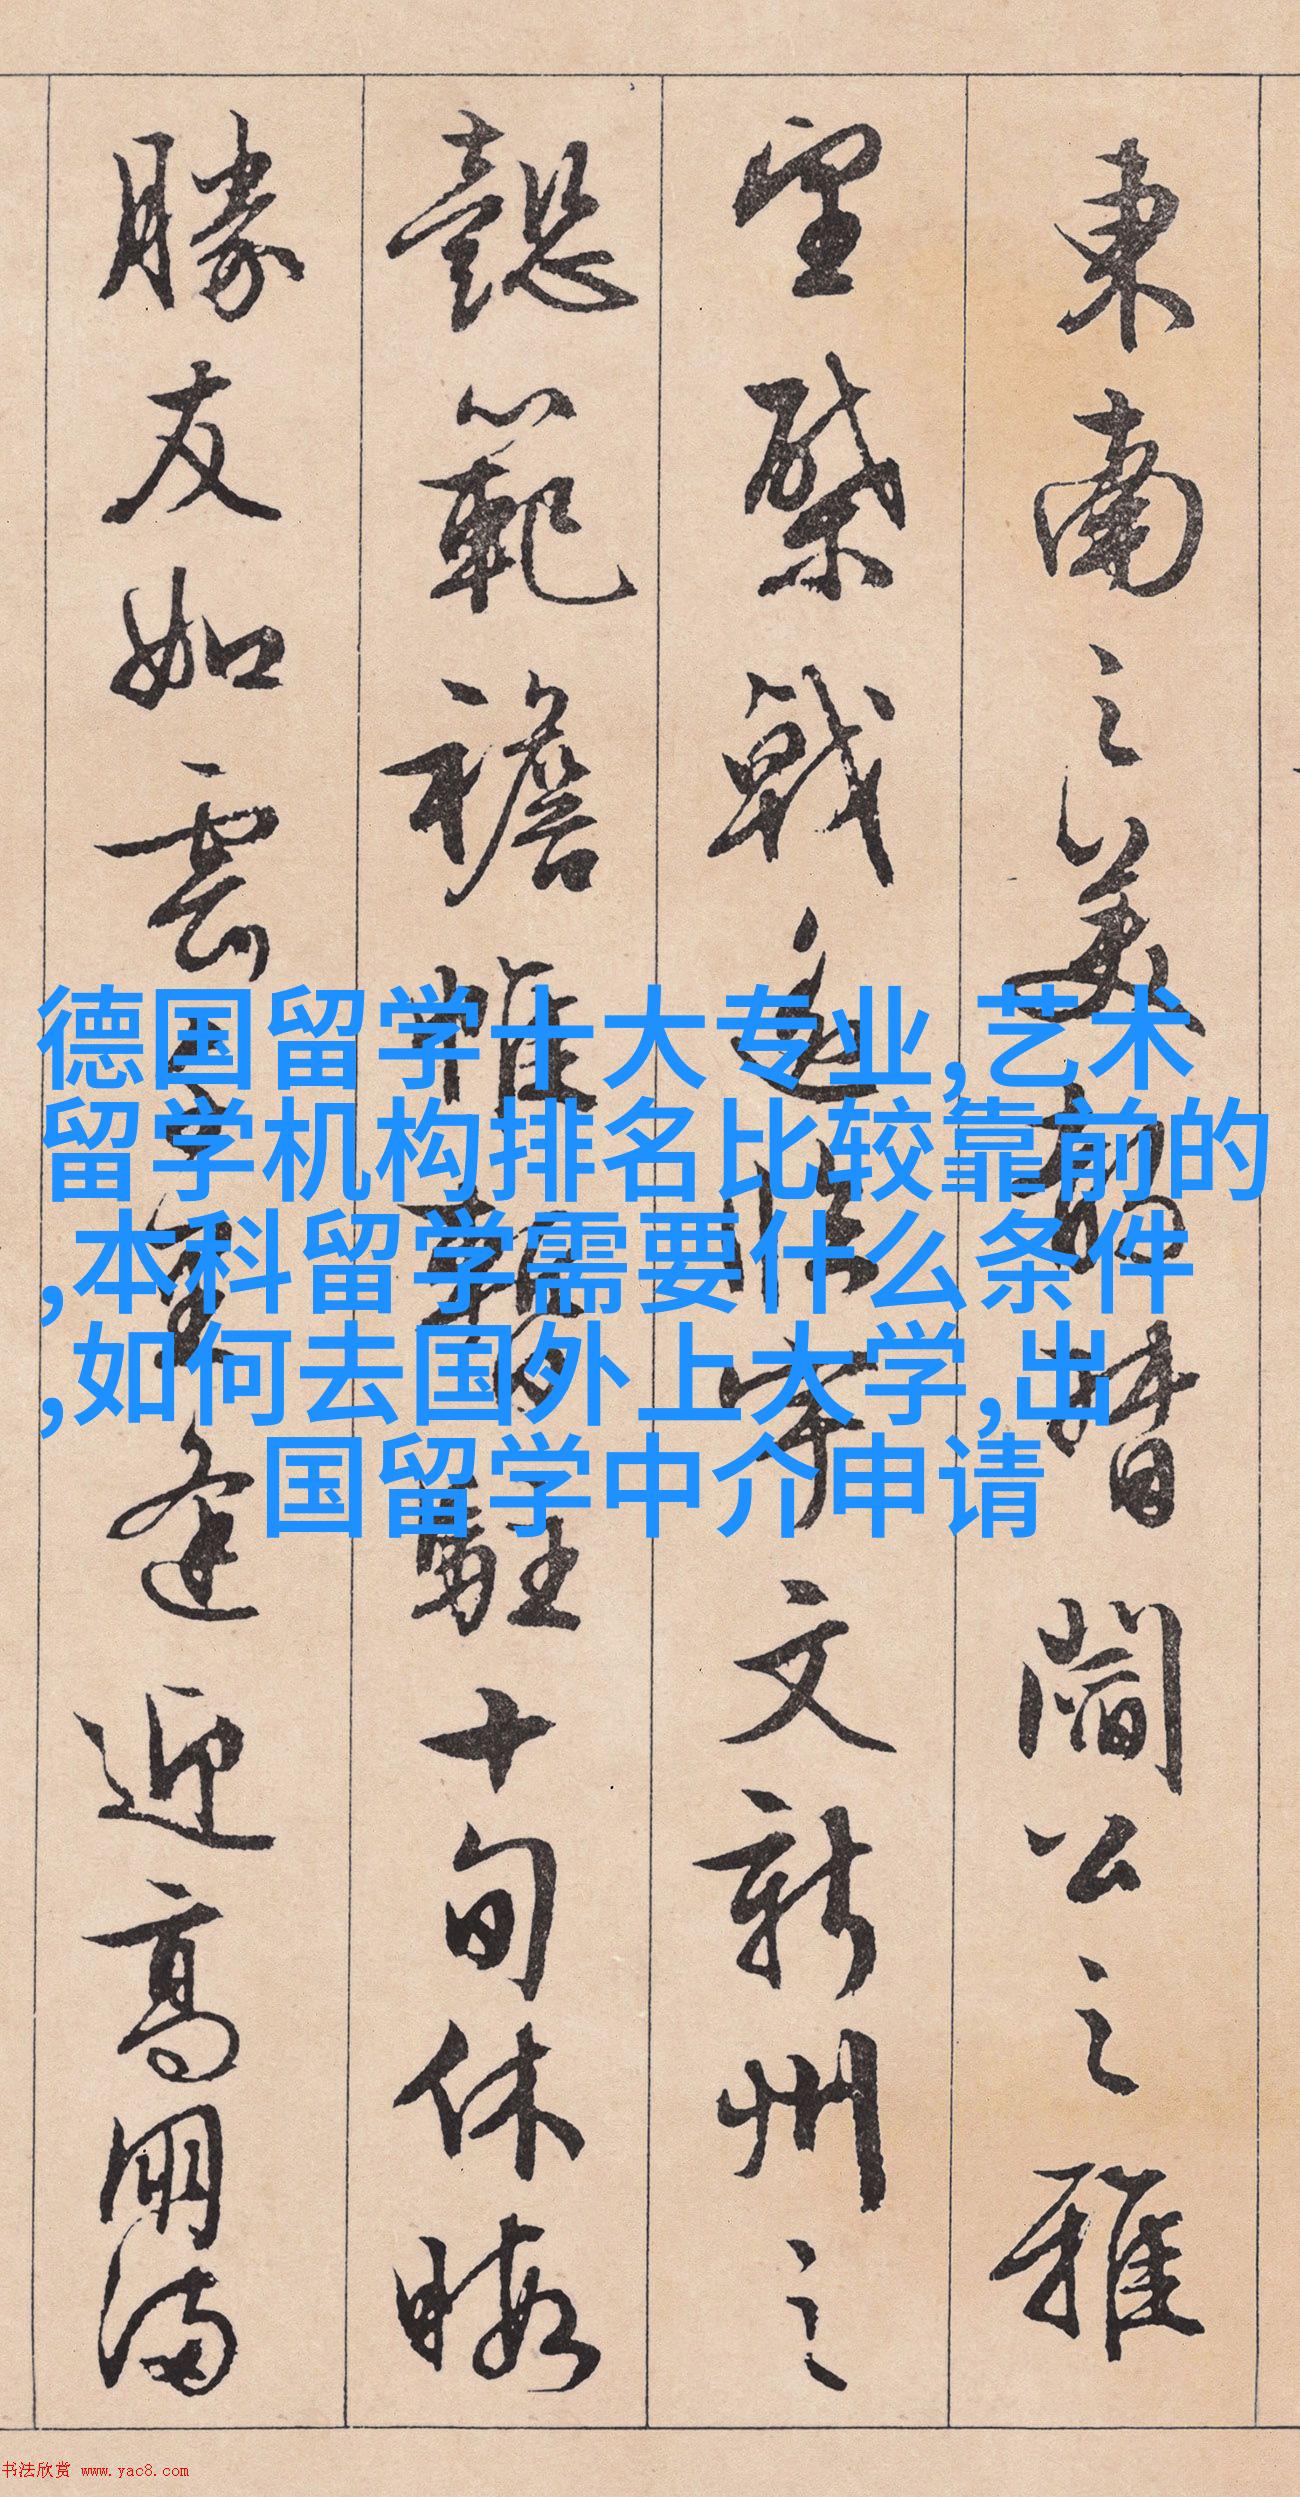 東南之美都督閻公之雅
望棨戟遙臨宇文新州之
懿範襜帷暫駐十旬休暇
勝友如雲千里逢迎高朋滿
德国留学十大专业,艺术
留学机构排名比较靠前的
,本科留学需要什么条件
,如何去国外上大学,出
国留学中介申请
书法欣赏 www.yac8.com